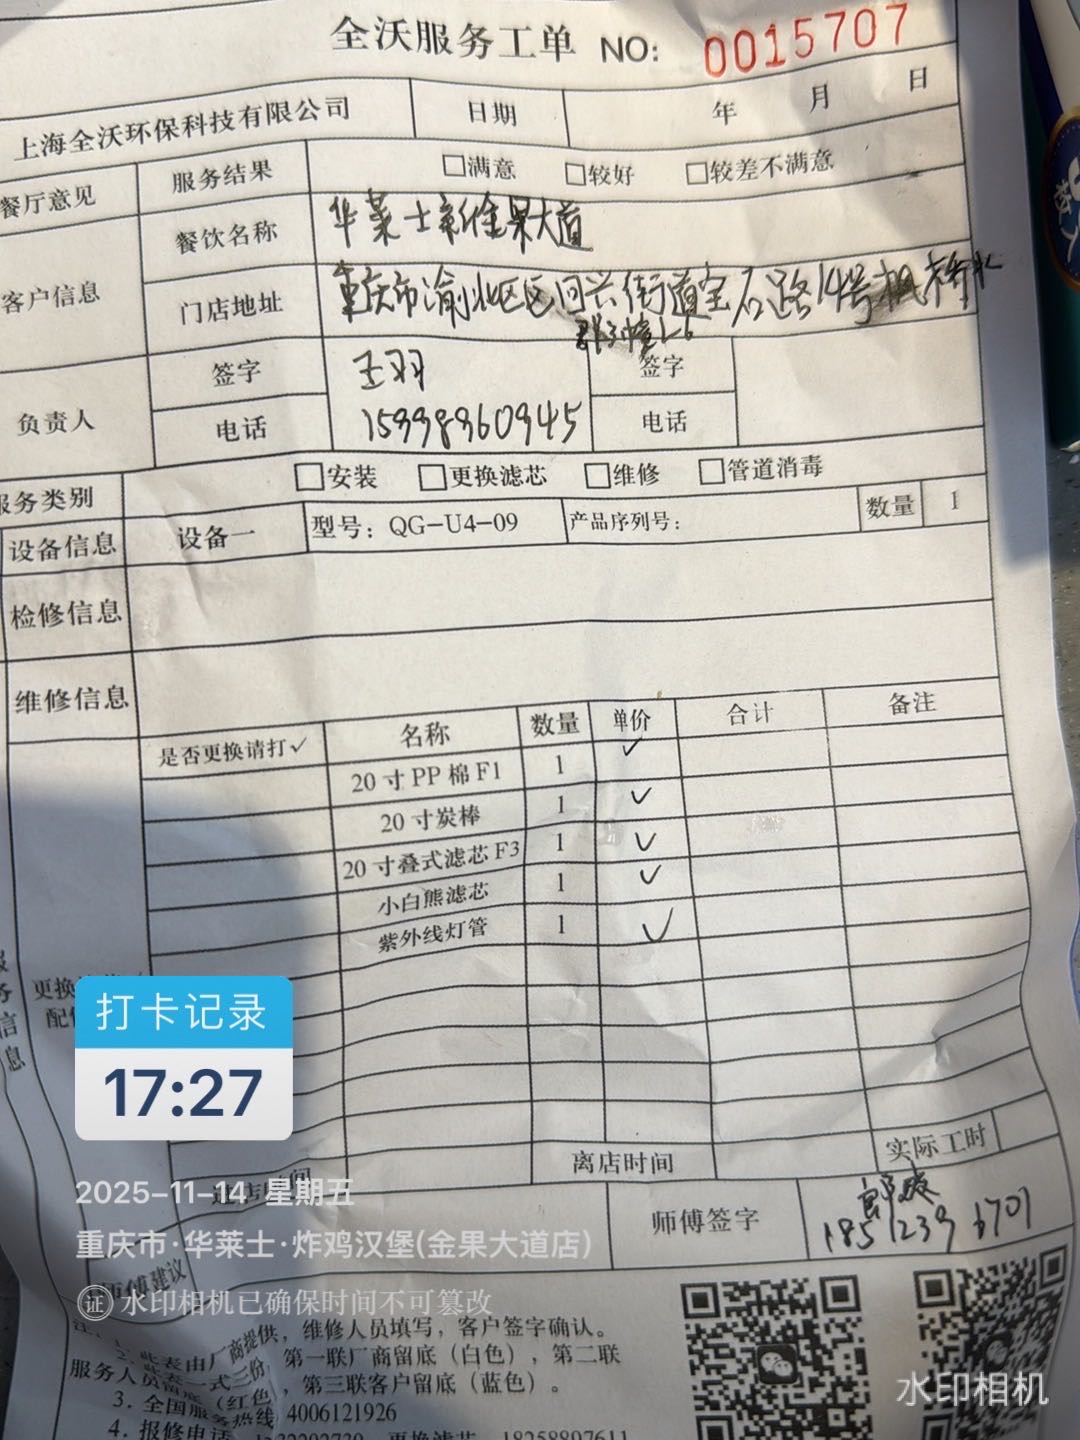 全沃服务工单 NO: 0015707
上海全沃环保科技有限公司 日期 年 月 日
餐厅意见 服务结果 □满意 □较好 □较差不满意
客户信息 餐饮名称 华莱士 金果大道
门店地址 重庆市渝北区区回兴街道宝石路14号枫桥水
郡 1-6
负责人 签字 王羽 签字
电话 15998960945 电话
服务类别 □安装 □更换滤芯 □维修 □管道消毒
设备信息 设备一 型号: QG-U4-09 产品序列号: 数量 1
检修信息
维修信息
是否更换请打✓ 名称 数量 单价 合计 备注
20寸PP棉F1 1 ✓
20寸炭棒 1 ✓
20寸叠式滤芯F3 1 ✓
小白熊滤芯 1 ✓
紫外线灯管 1 ✓
服务信息
更换
配
打卡记录
17:27
离店时间 实际工时
2025-11-14 星期五
师傅签字 郎 18512396701
重庆市·华莱士·炸鸡汉堡(金果大道店)
师傅建议
证 水印相机已确保时间不可篡改
注: 1. 此表由厂商提供，维修人员填写，客户签字确认。
2. 此表一式三份，第一联厂商留底（白色），第二联
服务人员留底（红色），第三联客户留底（蓝色）。
3. 全国服务热线 4006121926
4. 报修电话 更换滤芯 18258897611
水印相机